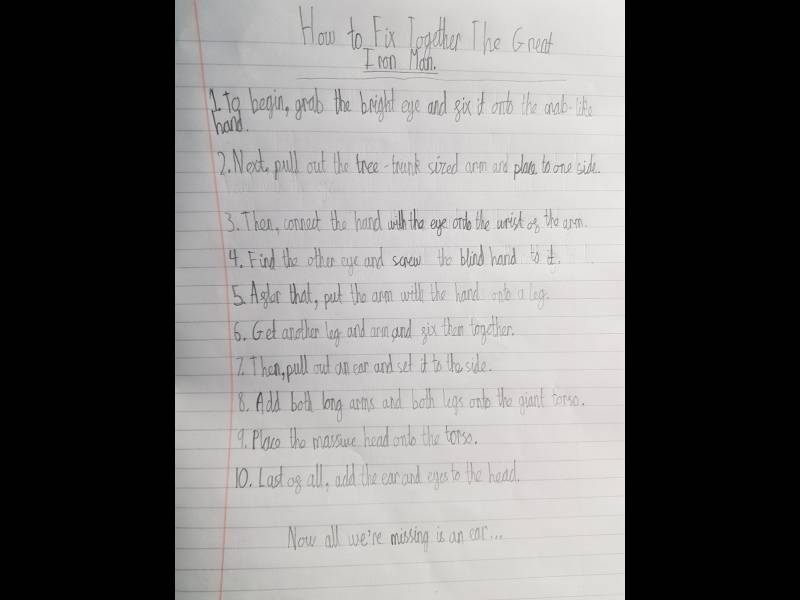 How to Fix Together The Great
Iron Man.
1. To begin, grab the bright eye and fix it onto the crab-like
hand.
2. Next, pull out the tree-trunk sized arm and place to one side.
3. Then, connect the hand with the eye onto the wrist of the arm.
4. Find the other eye and screw the blind hand to it.
5. After that, put the arm with the hand onto a leg.
6. Get another leg and arm, and fix them together.
7. Then, pull out an ear and set it to the side.
8. Add both long arms and both legs onto the giant torso.
9. Place the massive head onto the torso.
10. Last of all, add the ear and eyes to the head.
Now all we're missing is an ear...